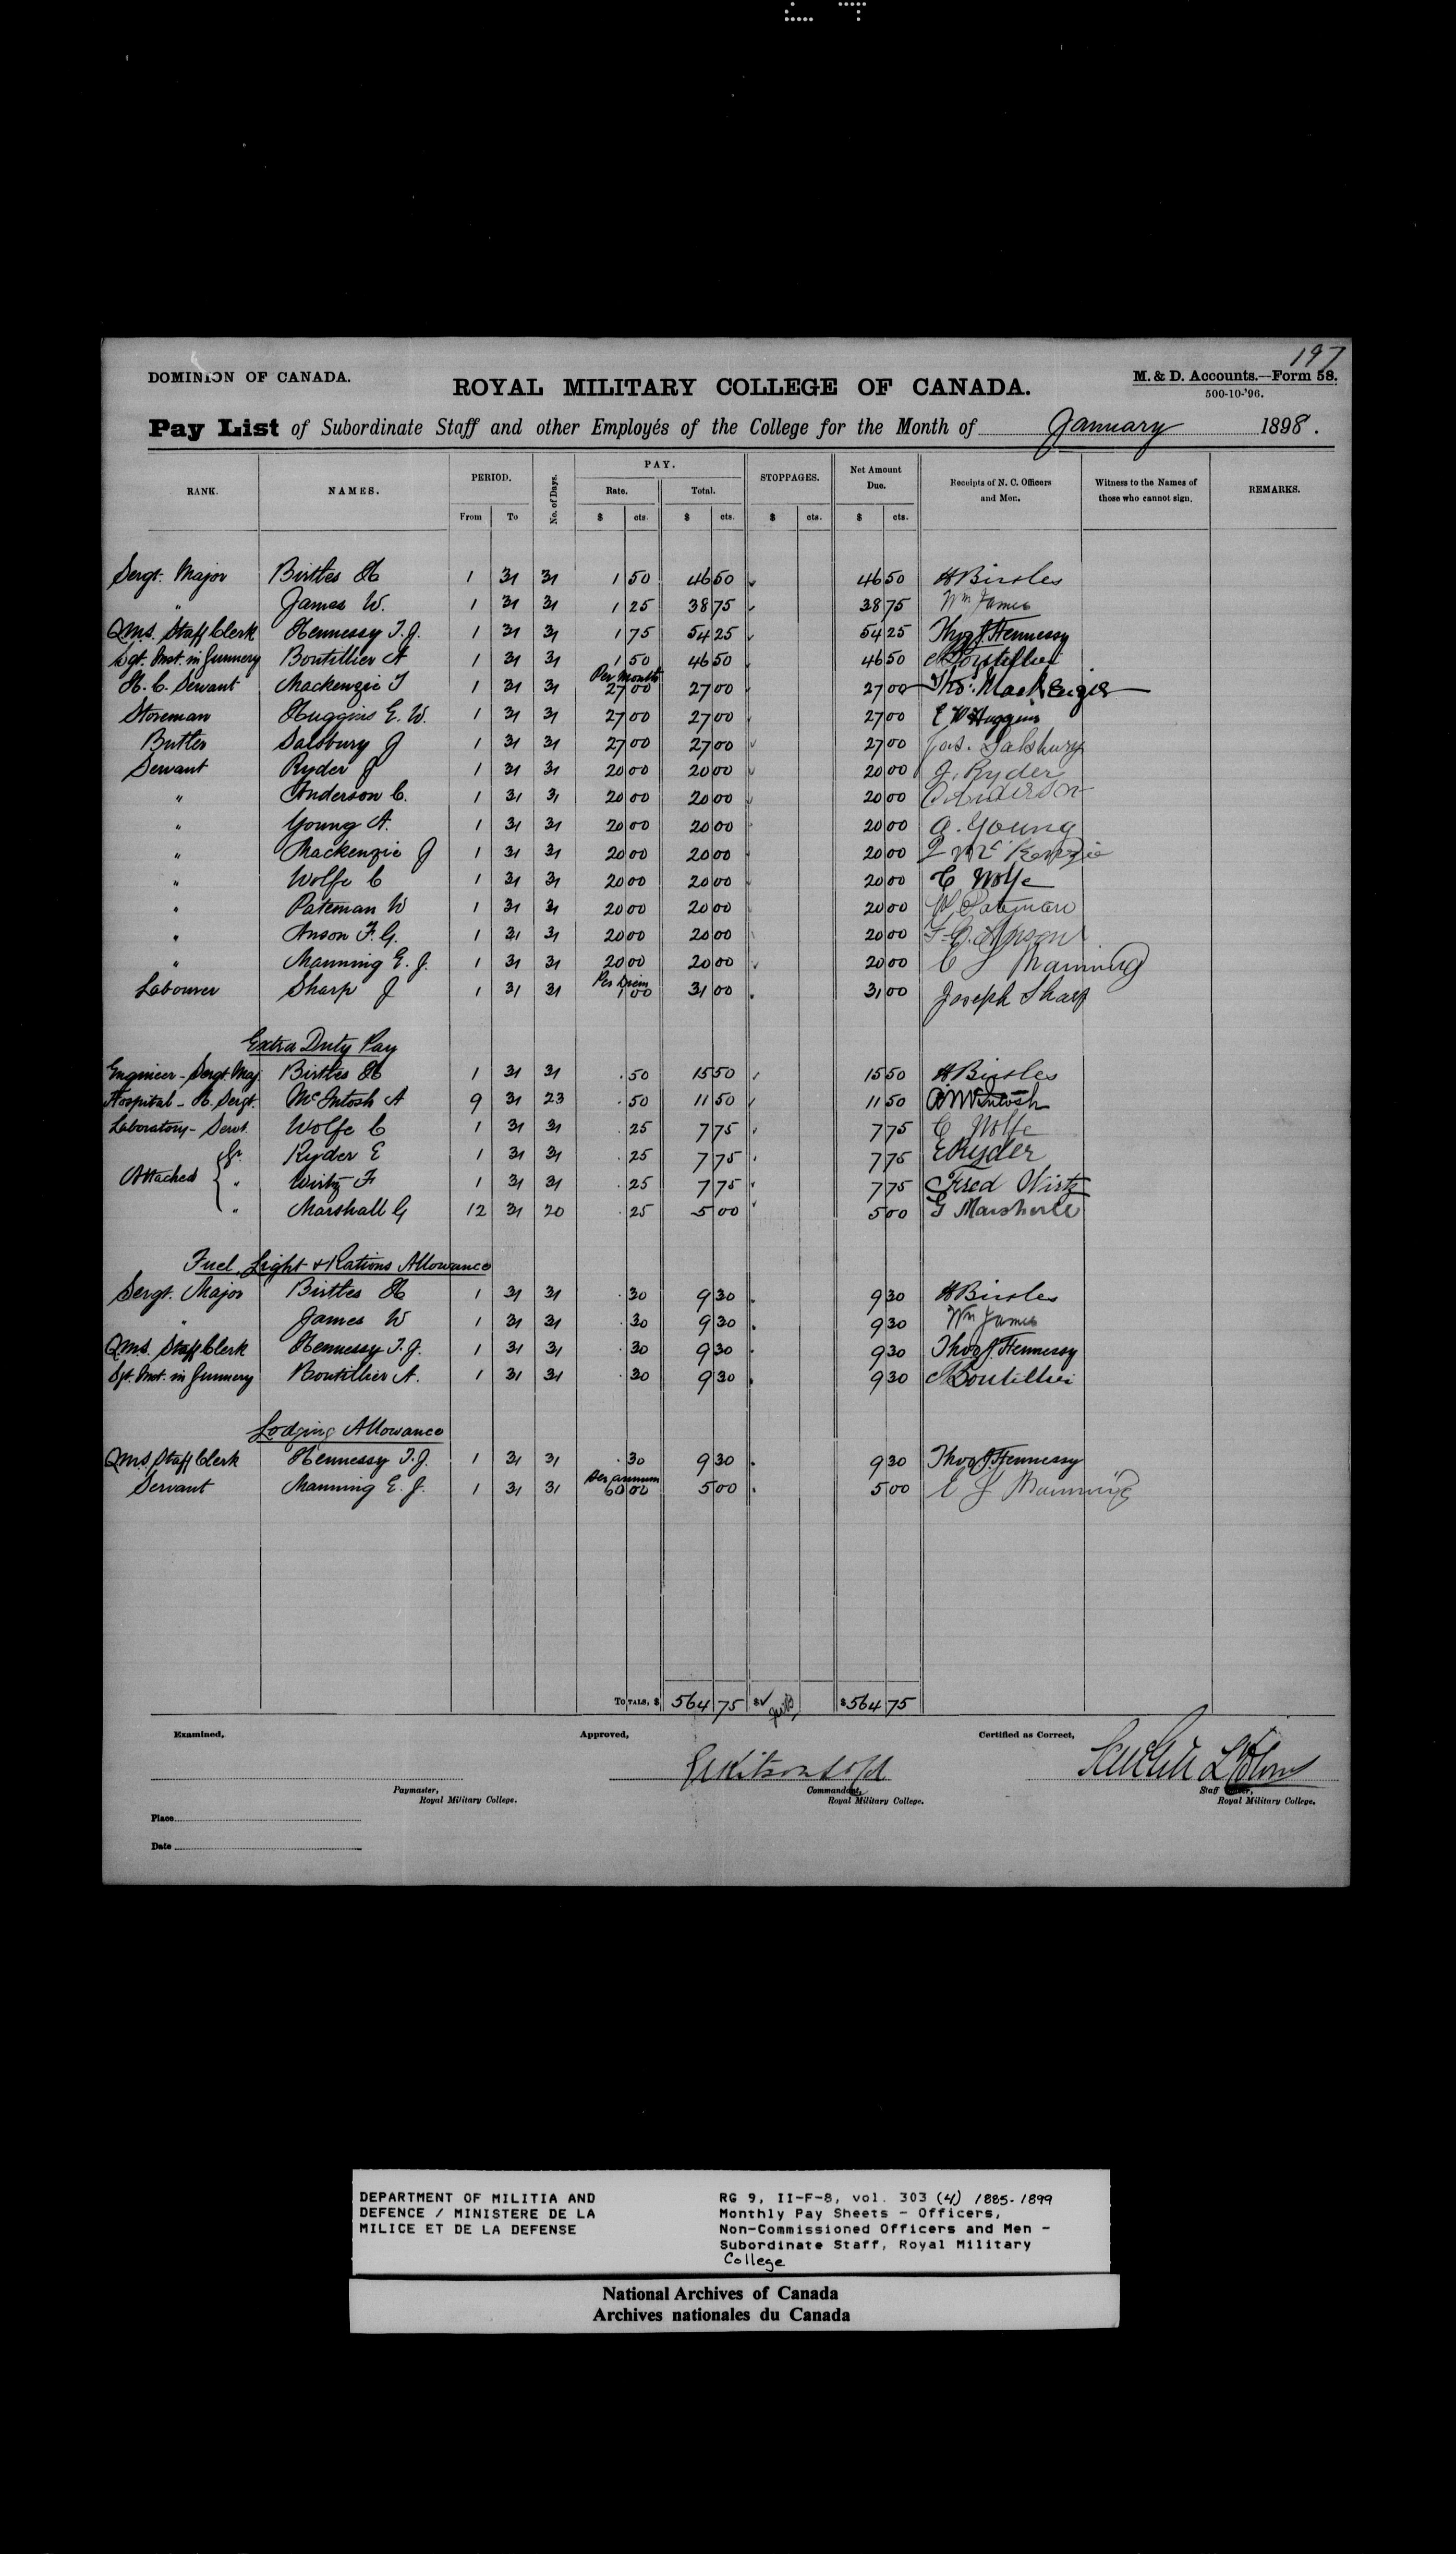 197
DOMINION OF CANADA.
M. & D. Accounts.—Form 58.
500-10-'96.
ROYAL MILITARY COLLEGE OF CANADA.
Pay List of Subordinate Staff and other Employés of the College for the Month of January 1898.
RANK. NAMES. PERIOD. From To No. of Days. PAY. Rate. $ cts. Total. $ cts. STOPPAGES. $ cts. Net Amount Due. $ cts. Receipts of N. C. Officers and Men. Witness to the Names of those who cannot sign. REMARKS.
Sergt. Major Birtles H 1 31 31 1 50 46 50 46 50 H Birtles
" James W. 1 31 31 1 25 38 75 38 75 Wm James
Q.M.S. Staff Clerk Hennessy T. J. 1 31 31 1 75 54 25 54 25 Thos J. Hennessy
Sgt. Inst. in Gunnery Boutillier A 1 31 31 1 50 46 50 46 50 A Boutillier
Per Month
H. C. Servant Mackenzie T 1 31 31 27 00 27 00 27 00 Thos. MacKenzie
Storeman Huggins E. W. 1 31 31 27 00 27 00 27 00 E W Huggins
Butler Salsbury J 1 31 31 27 00 27 00 27 00 Jas. Salsbury
Servant Ryder J 1 31 31 20 00 20 00 20 00 J. Ryder
" Anderson C. 1 31 31 20 00 20 00 20 00 C Anderson
" Young A. 1 31 31 20 00 20 00 20 00 A. Young
" Mackenzie J 1 31 31 20 00 20 00 20 00 J McKenzie
" Wolfe C 1 31 31 20 00 20 00 20 00 C Wolfe
" Pateman W 1 31 31 20 00 20 00 20 00 W Pateman
" Anson F. G. 1 31 31 20 00 20 00 20 00 F. G. Anson
" Manning E. J. 1 31 31 20 00 20 00 20 00 E J Manning
Per Diem
Labourer Sharp J 1 31 31 1 00 31 00 31 00 Joseph Sharp
Extra Duty Pay
Engineer - Sergt. Maj. Birtles H 1 31 31 .50 15 50 15 50 H Birtles
Hospital - H. Sergt. McIntosh A 9 31 23 .50 11 50 11 50 A McIntosh
Laboratory - Servt. Wolfe C 1 31 31 .25 7 75 7 75 C Wolfe
Attached { Gr. Ryder E 1 31 31 .25 7 75 7 75 E Ryder
" Wirtz F 1 31 31 .25 7 75 7 75 Fred Wirtz
" Marshall G 12 31 20 .25 5 00 5 00 G Marshall
Fuel, Light & Rations Allowance
Sergt. Major Birtles H 1 31 31 .30 9 30 9 30 H Birtles
" James W 1 31 31 .30 9 30 9 30 Wm James
Q.M.S. Staff Clerk Hennessy T. J. 1 31 31 .30 9 30 9 30 Thos J. Hennessy
Sgt. Inst. in Gunnery Boutillier A. 1 31 31 .30 9 30 9 30 A Boutillier
Lodging Allowance
QMS Staff Clerk Hennessy T. J. 1 31 31 .30 9 30 9 30 Thos J. Hennessy
Per annum
Servant Manning E. J. 1 31 31 60 00 5 00 5 00 E J Manning
TOTALS, $ 564 75 $ $564 75
Examined, Approved, Certified as Correct,
Paymaster, Royal Military College.
Commandant, Royal Military College.
Staff Royal Military College.
Place
Date
DEPARTMENT OF MILITIA AND
DEFENCE / MINISTERE DE LA
MILICE ET DE LA DEFENSE
RG 9, II-F-8, vol. 303 (4) 1885-1899
Monthly Pay Sheets - Officers,
Non-Commissioned Officers and Men -
Subordinate Staff, Royal Military
College
National Archives of Canada
Archives nationales du Canada